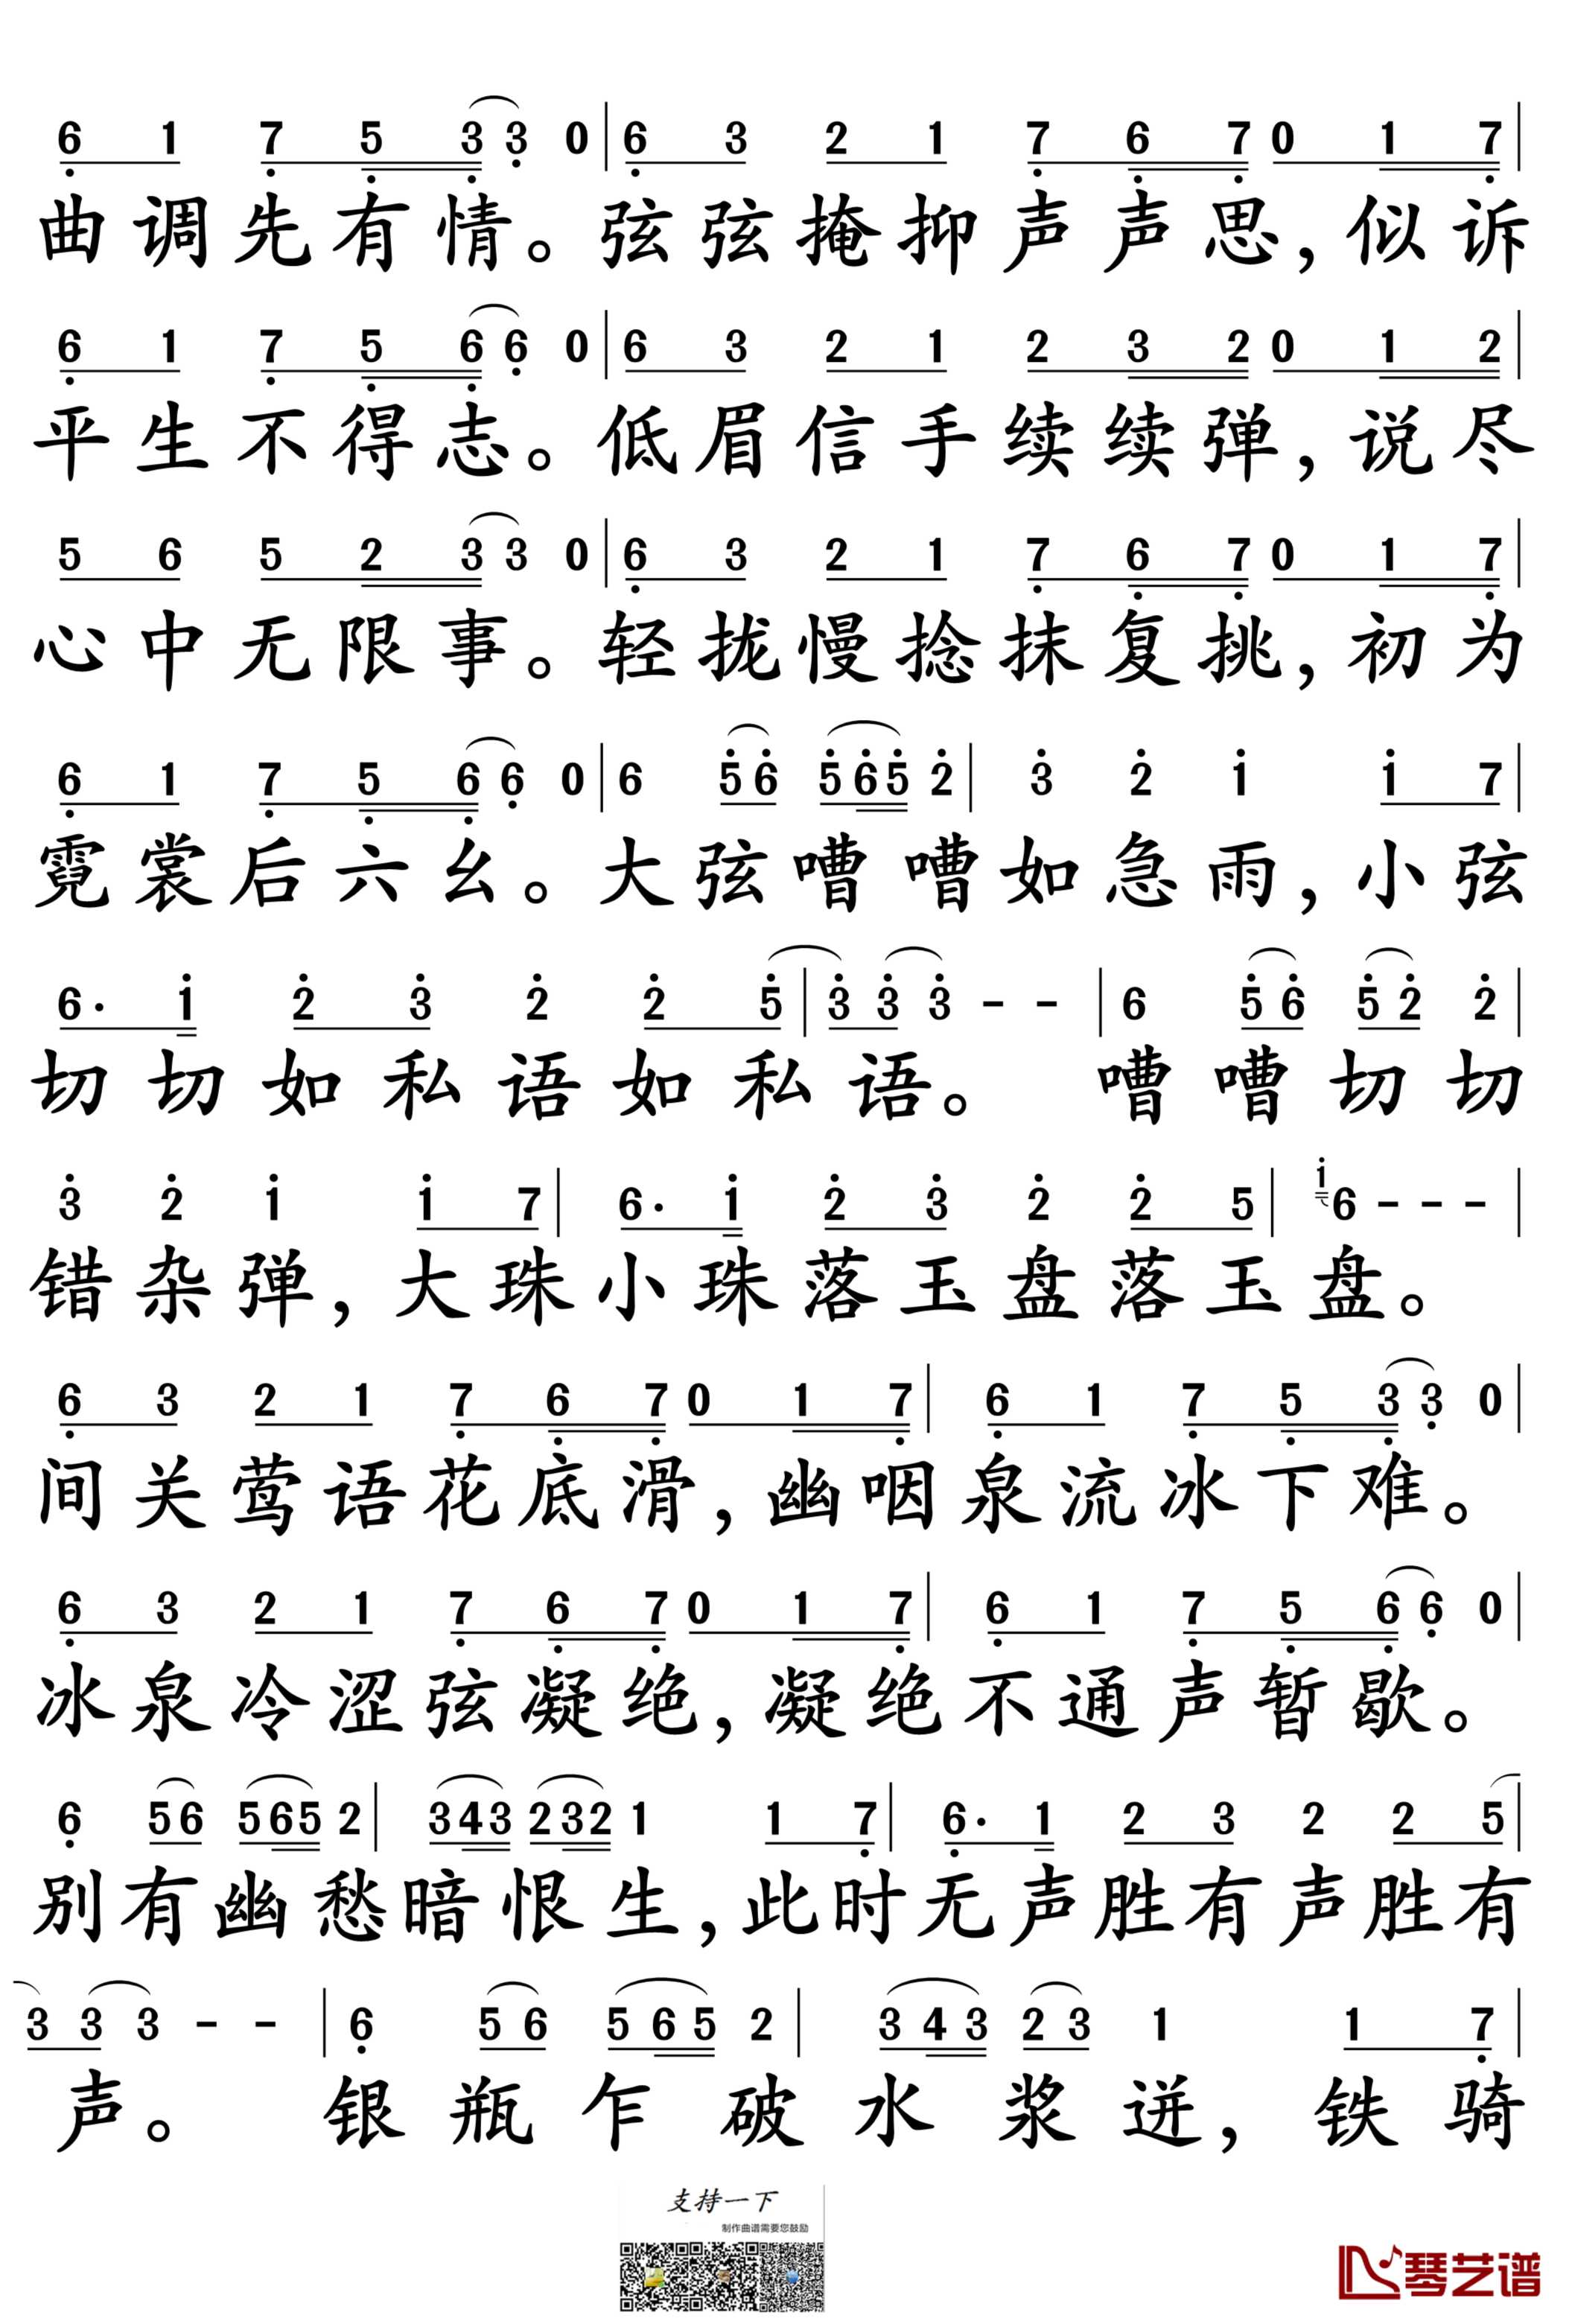 6 1 7 5 3 3 0 | 6 3 2 1 7 6 7 0 1 7 |
曲调先有情。弦弦掩抑声声思,似诉
6 1 7 5 6 6 0 | 6 3 2 1 2 3 2 0 1 2 |
平生不得志。低眉信手续续弹,说尽
5 6 5 2 3 3 0 | 6 3 2 1 7 6 7 0 1 7 |
心中无限事。轻拢慢捻抹复挑,初为
6 1 7 5 6 6 0 | 6 5 6 5 6 5 2 | 3 2 1 1 7 |
霓裳后六幺。大弦嘈嘈如急雨,小弦
6· 1 2 3 2 2 5 | 3 3 3 - - | 6 5 6 5 2 2 |
切切如私语如私语。 嘈嘈切切
3 2 1 1 7 | 6· 1 2 3 2 2 5 | 1 6 - - - |
错杂弹,大珠小珠落玉盘落玉盘。
6 3 2 1 7 6 7 0 1 7 | 6 1 7 5 3 3 0 |
间关莺语花底滑,幽咽泉流冰下难。
6 3 2 1 7 6 7 0 1 7 | 6 1 7 5 6 6 0 |
冰泉冷涩弦凝绝,凝绝不通声暂歇。
6 5 6 5 6 5 2 | 3 4 3 2 3 2 1 1 7 | 6· 1 2 3 2 2 5 |
别有幽愁暗恨生,此时无声胜有声胜有
3 3 3 - - | 6 5 6 5 6 5 2 | 3 4 3 2 3 1 1 7 |
声。 银瓶乍破水浆迸,铁骑
支持一下
制作曲谱需要您鼓励
琴艺谱